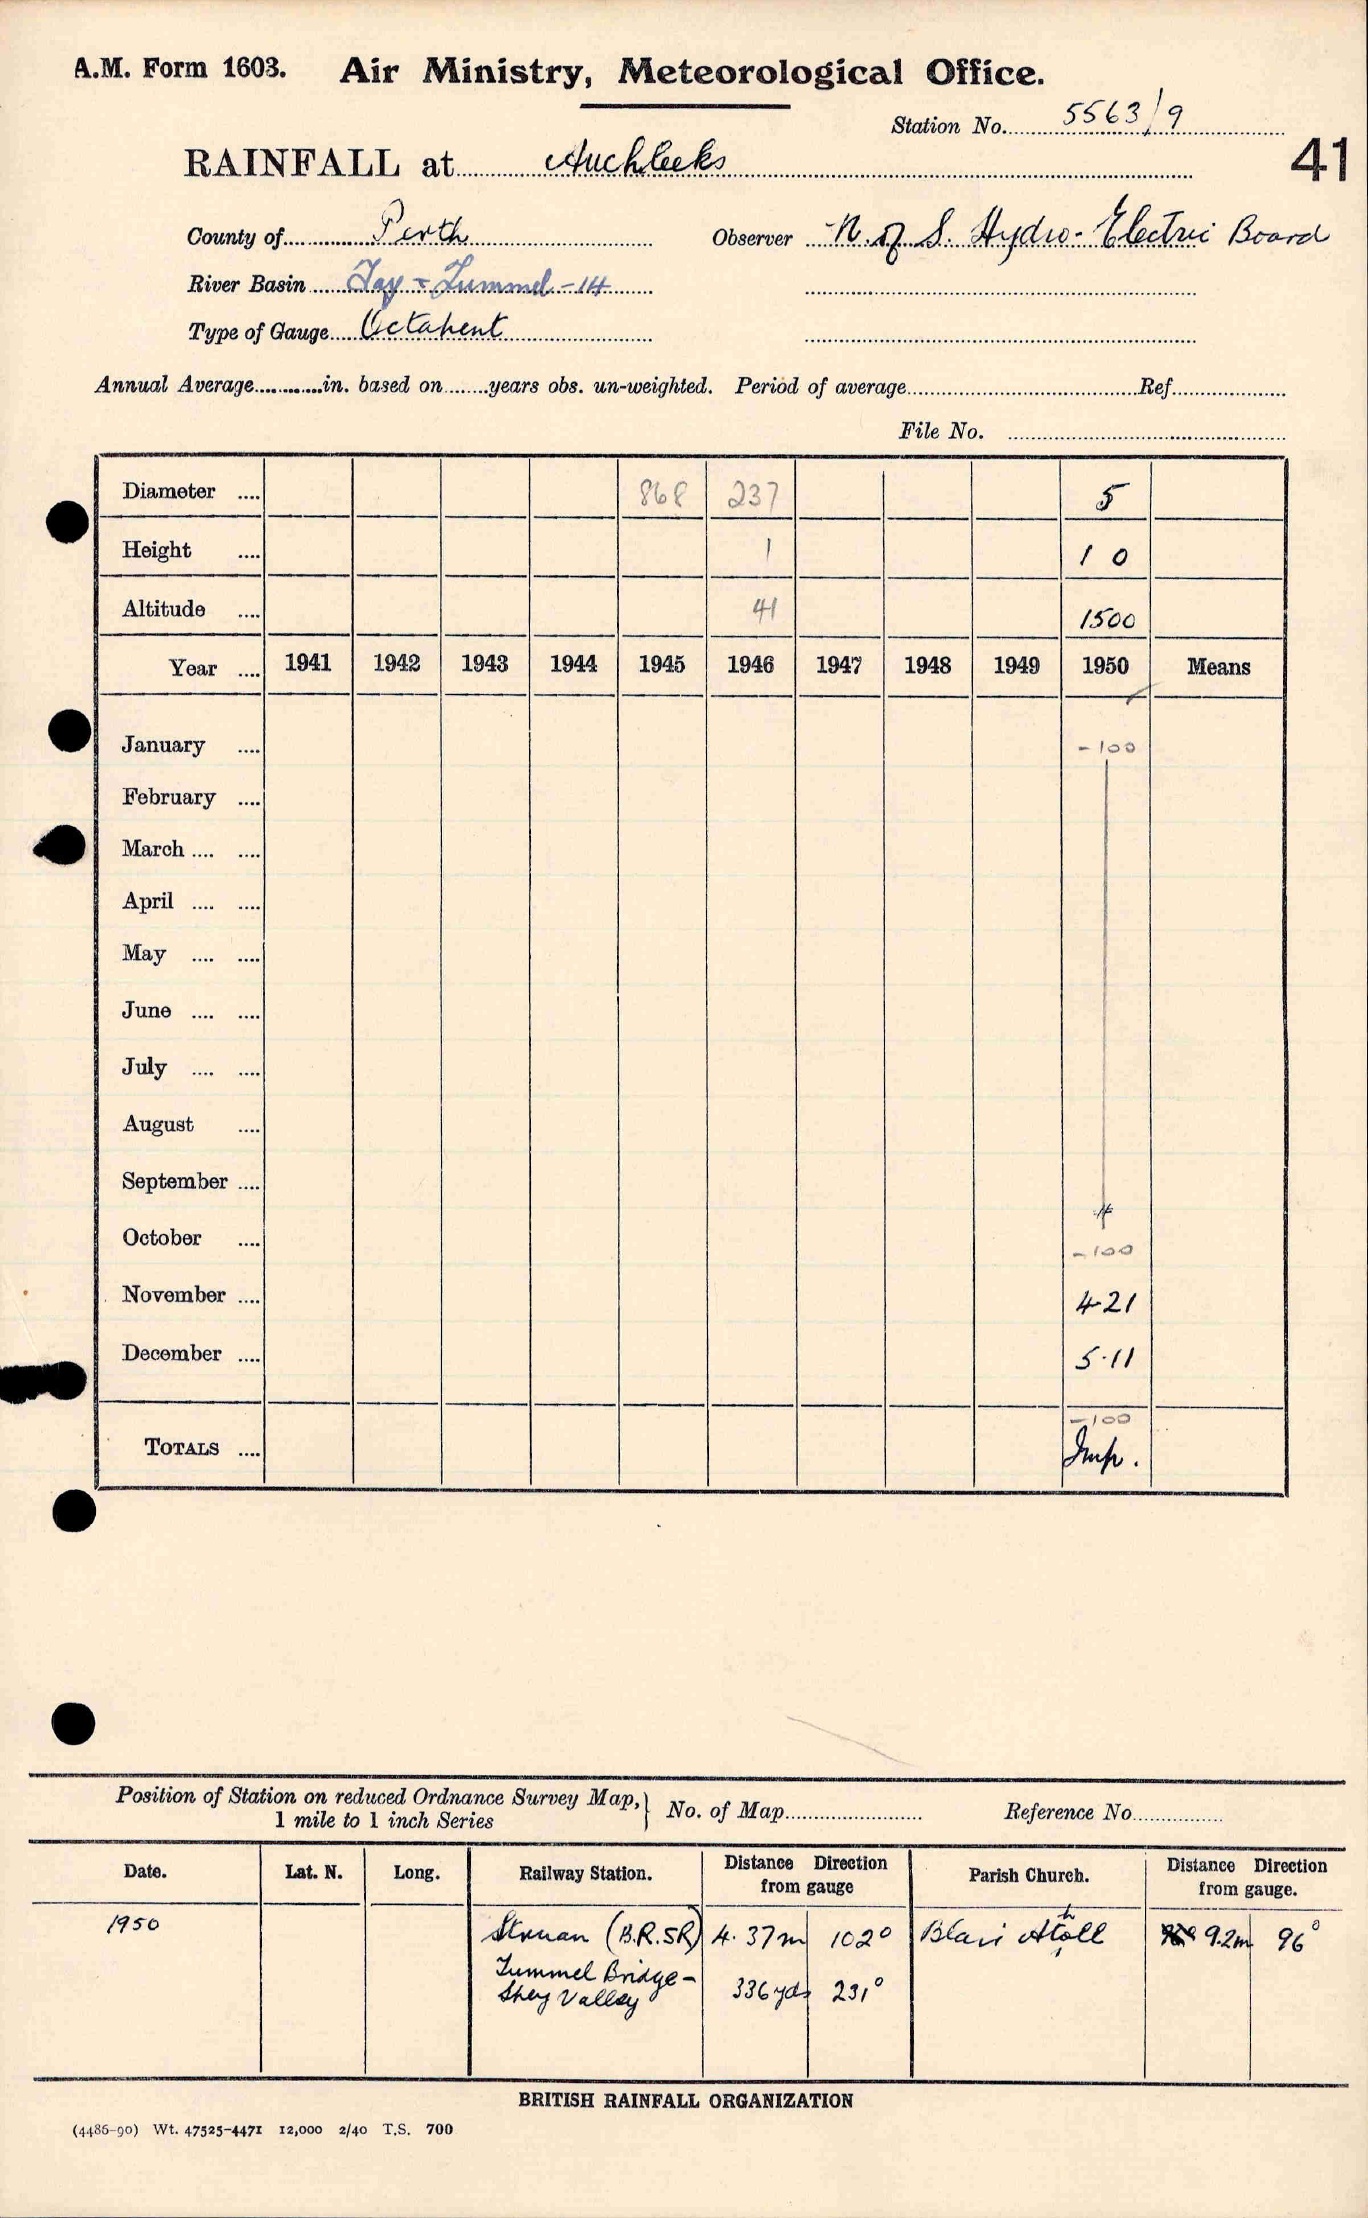 A.M. Form 1603. Air Ministry, Meteorological Office.
Station No. 5563/9
41
RAINFALL at Auchleeks
County of Perth Observer N. of S. Hydro-Electric Board
River Basin Tay & Tummel - 14
Type of Gauge Octapent
Annual Average in. based on years obs. un-weighted. Period of average Ref.
File No.
Diameter 868 237 5
Height 1 1 0
Altitude 41 1500
Year 1941 1942 1943 1944 1945 1946 1947 1948 1949 1950 Means
January -100
February
March
April
May
June
July
August
September
October -100
November 4.21
December 5.11
-100
TOTALS Imp.
Position of Station on reduced Ordnance Survey Map, } No. of Map Reference No.
1 mile to 1 inch Series
Date. Lat. N. Long. Railway Station. Distance Direction from gauge Parish Church. Distance Direction from gauge.
1950 Struan (B.R.SR) 4.37m 102° Blair Atholl 9.2m 96°
Tummel Bridge -
Valley 336 yds 231°
BRITISH RAINFALL ORGANIZATION
(4486-90) Wt. 47525-4471 12,000 2/40 T.S. 700